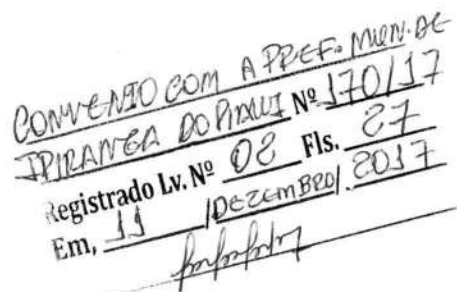 CONVENIO COM A PREF. MUN. DE
IPIRANGA DO PIAUI Nº 170/17
Registrado Lv. Nº 02 Fls. 27
Em, 11 / DEZEMBRO / 2017